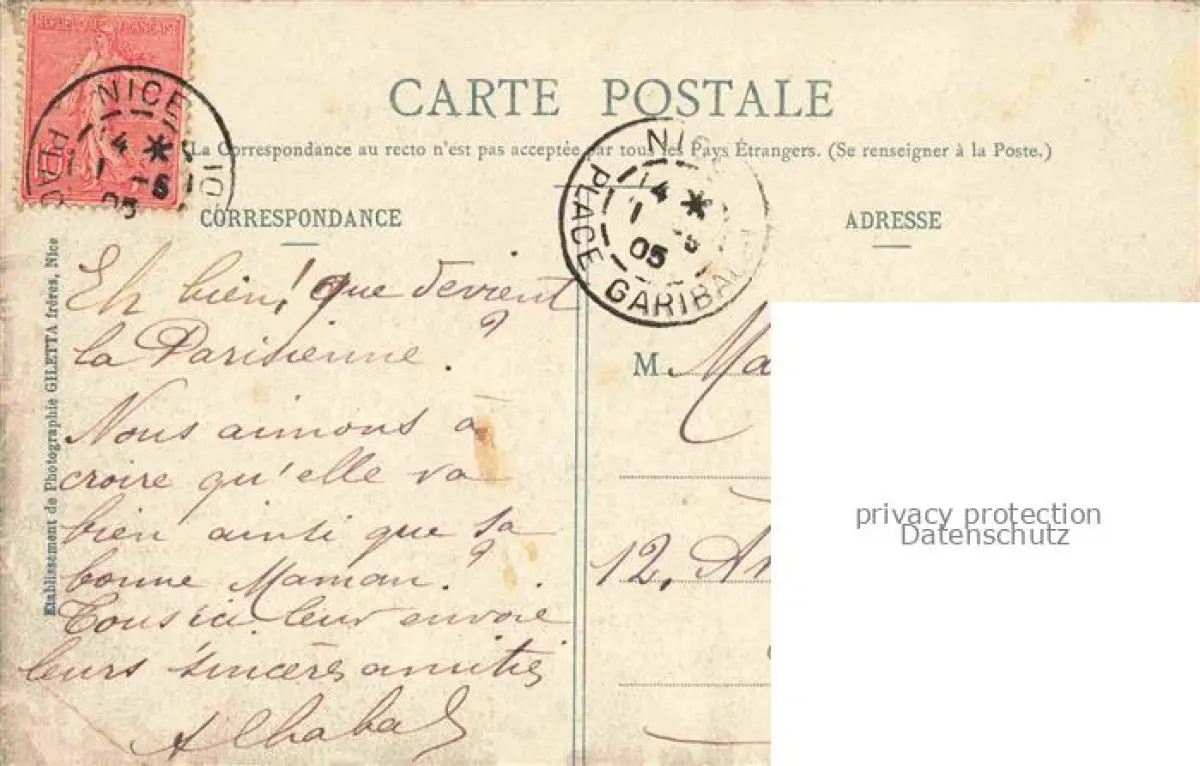 REPUBLIQUE FRANÇAISE
NICE
14 *
1 -5
05
CARTE POSTALE
La Correspondance au recto n'est pas acceptée par tous les Pays Étrangers. (Se renseigner à la Poste.)
NICE
14 *
1 -5
05
PLACE GARIBALDI
CORRESPONDANCE
Eh bien! que devient
la Parisienne ?
Nous aimons à
croire qu'elle va
bien ainsi que sa
bonne Maman ?
Tous ici leur envoie
leurs sincères amitiés
Etablissement de Photographie GILETTA frères, Nice
ADRESSE
M. Ma
12, A
privacy protection
Datenschutz